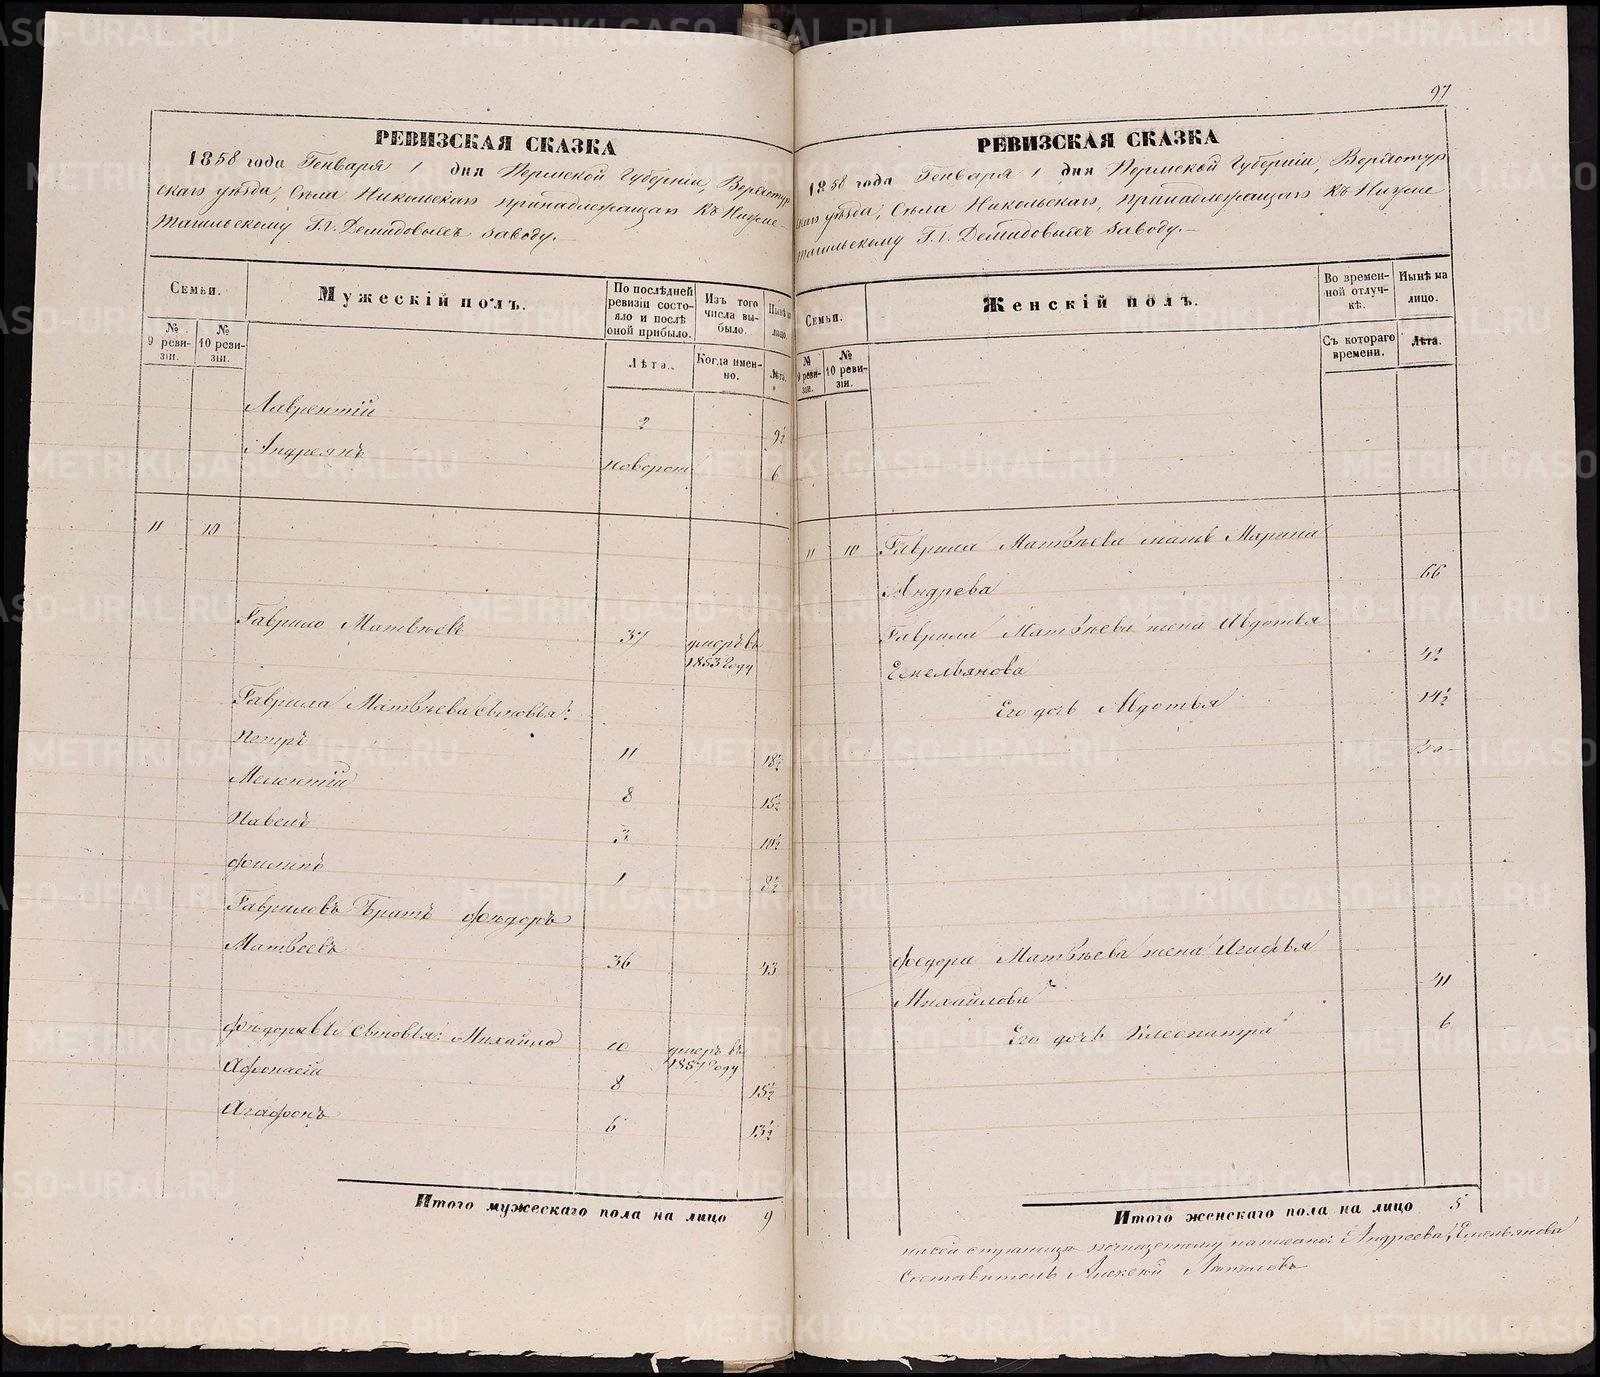 97
РЕВИЗСКАЯ СКАЗКА
1858 года Генваря 1 дня Пермской Губерніи, Верхотур
скаго уѣзда, Села Никольскаго принадлежащаго къ Нижне-
тагильскому Г.г. Демидовыхъ заводу.—
Семьи.
Мужескій полъ.
По послѣдней ревизіи состояло и послѣ оной прибыло.
Изъ того числа выбыло.
Нынѣ на лицо.
№ 9 ревизіи.
№ 10 ревизіи.
Лѣта.
Когда именно.
Лѣта.
Лаврентій 2 9½
Андреянъ новорож 6
11 10
Гаврило Матвѣевъ 37 умеръ въ
1853 году
Гаврила Матвѣева сыновья:
Петръ 11 18½
Мелентій 8 15½
Павелъ 3 10½
Филипъ 1 8½
Гавриловъ Братъ Фѣдоръ
Матвѣевъ 36 43
Фѣдоравы сыновья: Михайло 10 умеръ въ
1857 году
Афонасій 8 15½
Агафонъ 6 13½
Итого мужескаго пола на лицо 9
РЕВИЗСКАЯ СКАЗКА
1858 года Генваря 1 дня Пермской Губерніи, Верхотур
скаго уѣзда, Села Никольскаго, принадлежащаго къ Нижне
тагильскому Г.г. Демидовыхъ заводу.—
Семьи.
Женскій полъ.
Во временной отлучкѣ.
Нынѣ на лицо.
№ 9 ревизіи.
№ 10 ревизіи.
Съ котораго времени.
Лѣта.
11 10 Гаврила Матвѣева мать Марина
Андрева 66
Гаврила Матвѣева жена Авдотья
Емельянова 42
Его дочь Авдотья 14½
Федора Матвѣева жена Агафья
Михайлова 41
Его дочь Клеопатра 6
Итого женскаго пола на лицо 5
на сей страницѣ почищенному написано: Андреева, Емельянова
Составитель Алексѣй